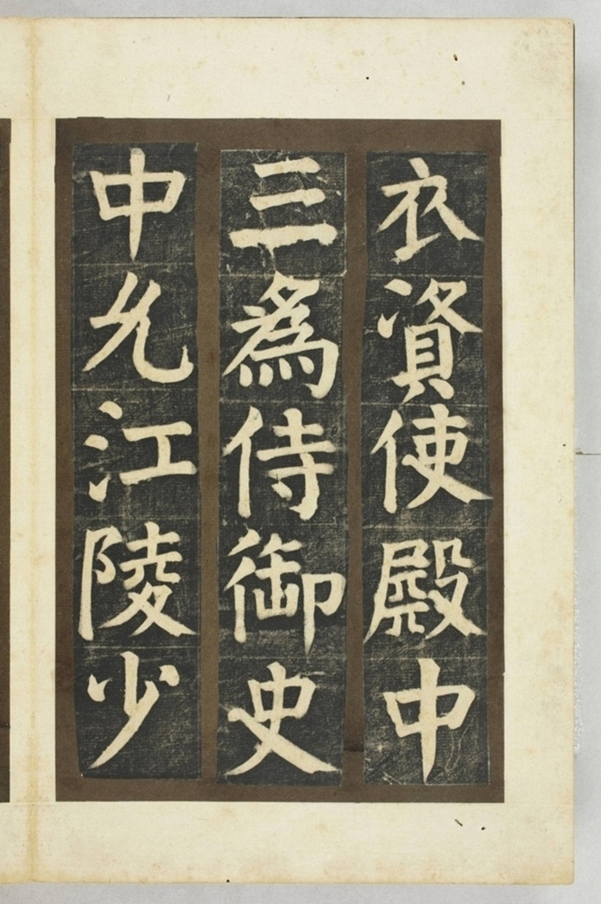 衣資使殿中
三為侍御史
中允江陵少